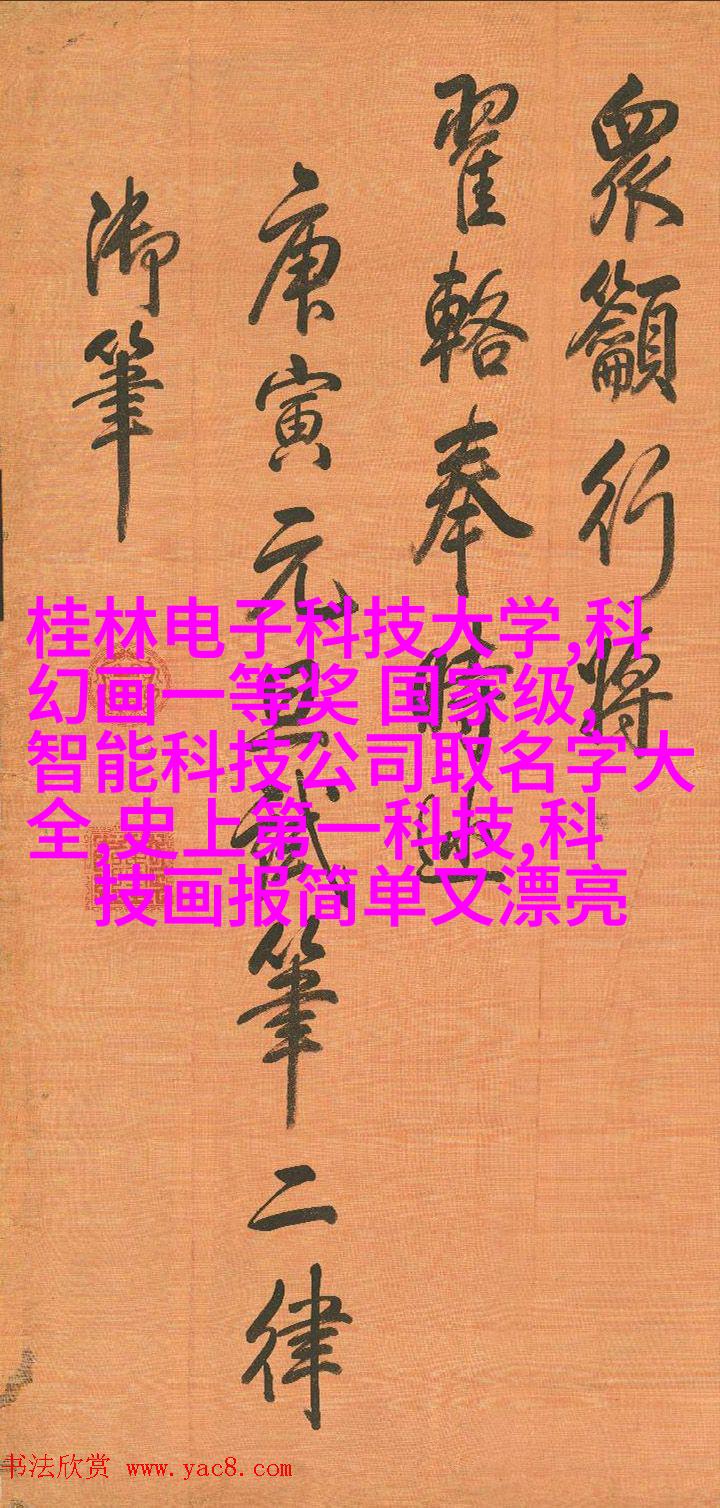 眾籲行將
翟輅奉時巡
庚寅元旦試筆二律
御筆
桂林电子科技大学,科
幻画一等奖 国家级,
智能科技公司取名字大
全,史上第一科技,科
技画报简单又漂亮
书法欣赏 www.yac8.com